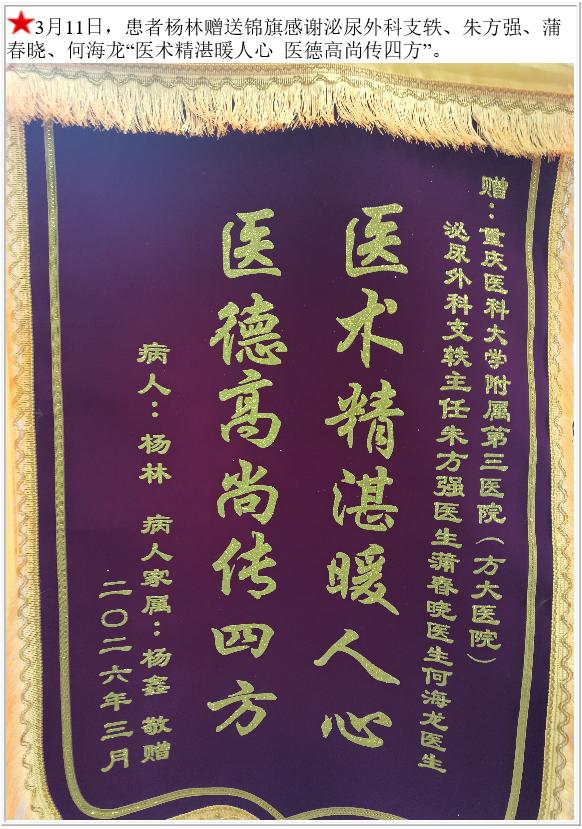 3月11日，患者杨林赠送锦旗感谢泌尿外科支轶、朱方强、蒲
春晓、何海龙“医术精湛暖人心 医德高尚传四方”。
赠：重庆医科大学附属第三医院（方大医院）
泌尿外科支轶主任朱方强医生蒲春晓医生何海龙医生
医术精湛暖人心
医德高尚传四方
病人：杨林 病人家属：杨鑫 敬赠
二〇二六年三月